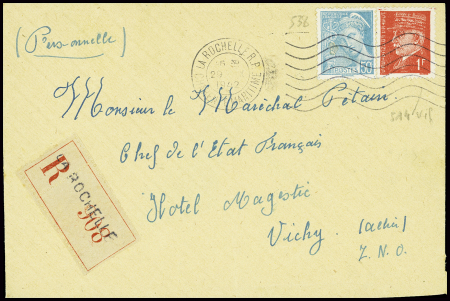 536
(Personnelle)
LA ROCHELLE R.P.
50
1F
Monsieur le Maréchal Pétain
514
Chef de l'Etat Français
R LA ROCHELLE
508
Hotel Magestic
Vichy (Allier)
Z.N.O.